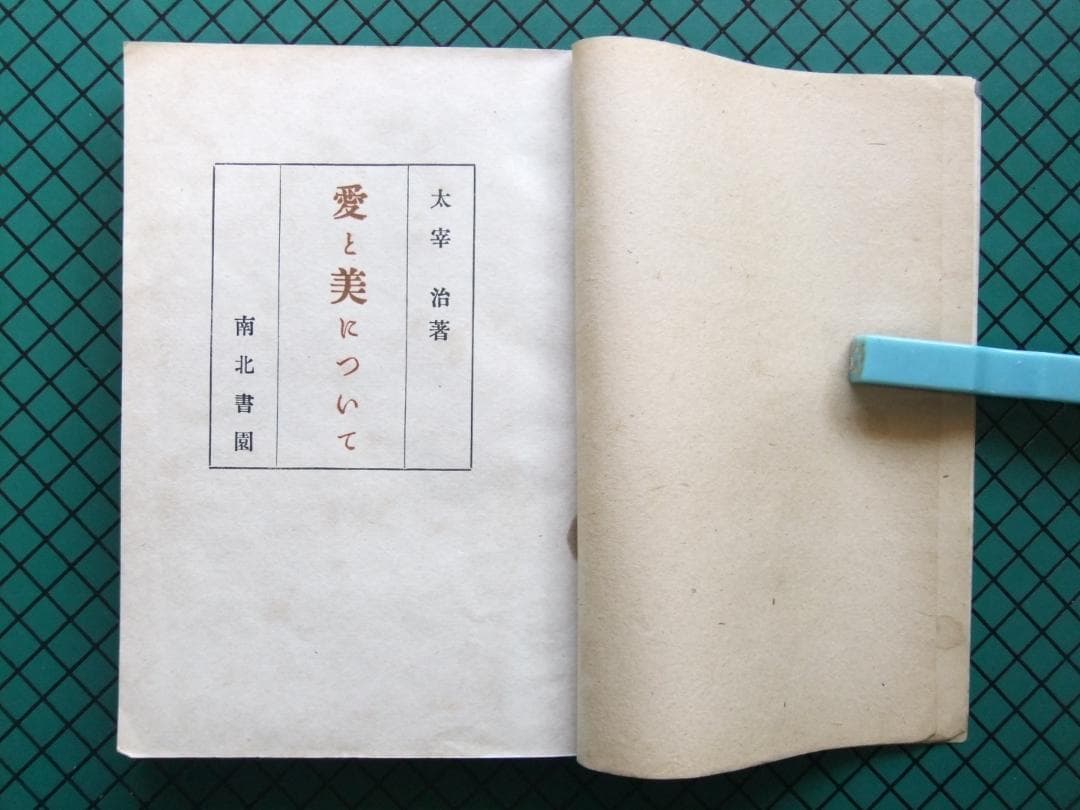 太宰 治著
愛と美について
南北書園